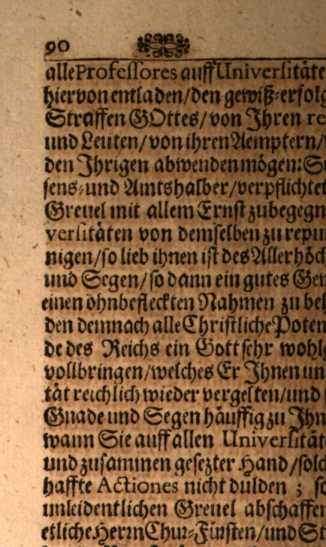 90
alle Professores auff Universitäte
hiervon entladen/den gewiß-erfolg
Straffen GOttes/von Ihren re
und Leuten/von ihren Aemptern/
den Ihrigen abwenden mögen: S
sens-und Amtshalber/verpflichtet
Greuel mit allem Ernst zubegegn
versitäten von demselben zu repu
nigen/so lieb ihnen ist des Allerhöch
und Segen/so dann ein gutes Gew
einen ohnbefleckten Nahmen zu beh
den demnach alle Christliche Poten
de des Reichs ein Gott sehr wohlg
vollbringen/welches Er Ihnen un
tät reichlich wieder vergelten/und
Gnade und Segen häuffig zu Ihn
wann Sie auff allen Universität
und zusammen gesezter Hand/solc
haffte Actiones nicht dulden; so
unleidentlichen Greuel abschaffen
etliche Herrn Chur-Fürsten/und St